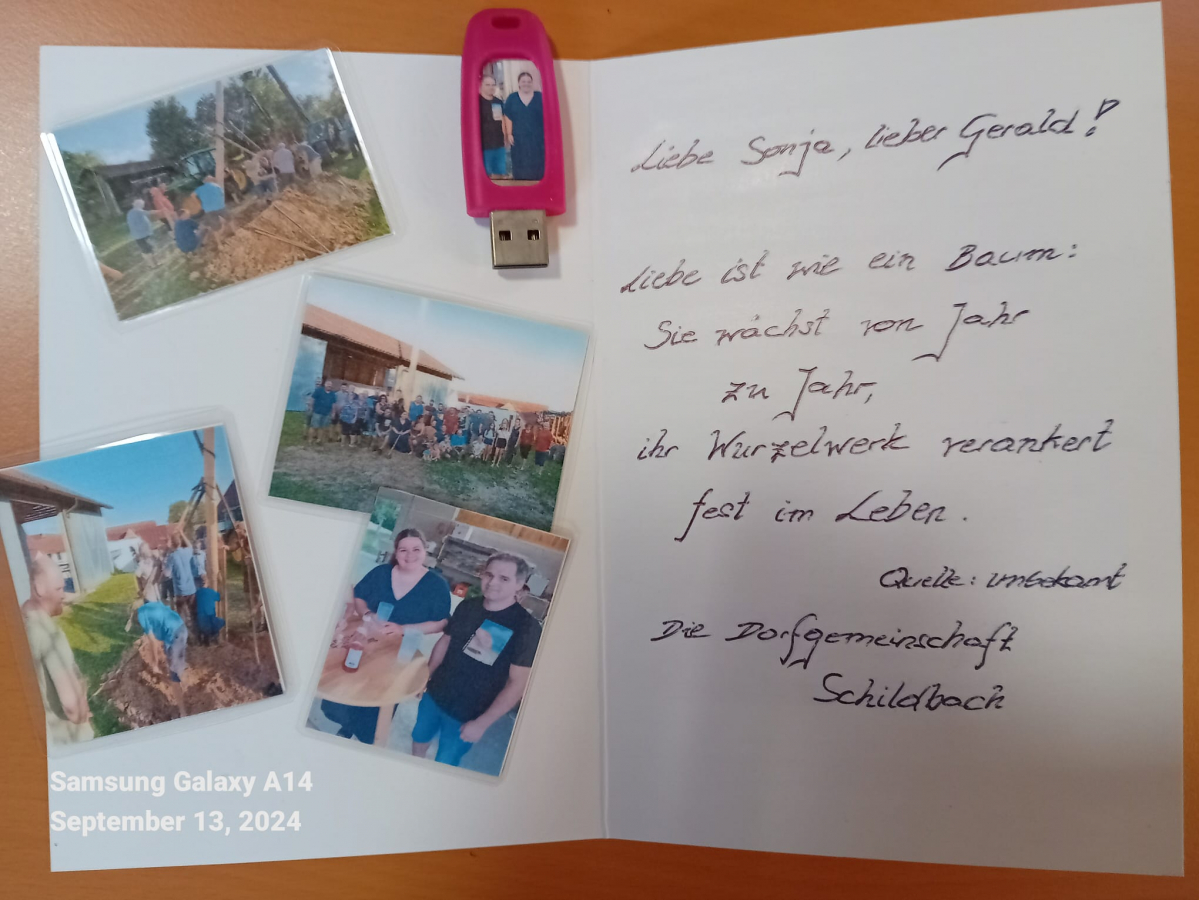 Liebe Sonja, lieber Gerald!
Liebe ist wie ein Baum:
Sie wächst von Jahr
zu Jahr,
ihr Wurzelwerk verankert
fest im Leben.
Quelle: unbekannt
Die Dorfgemeinschaft
Schildbach
Samsung Galaxy A14
September 13, 2024